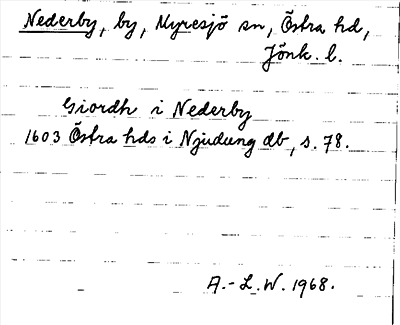 Nederby, by, Myresjö sn, Östra hd,
Jönk. l.
Giordh i Nederby
1603 Östra hds i Njudung db, s. 78.
A.-L.W. 1968.